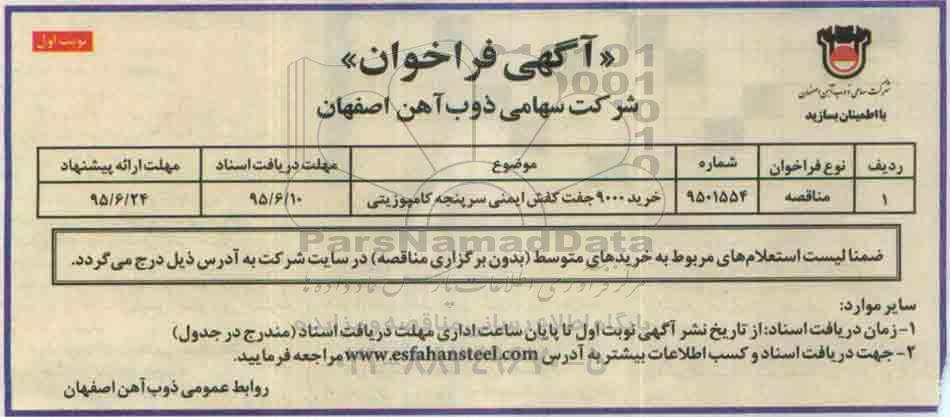 نوبت اول
«آگهی فراخوان»
شرکت سهامی ذوب آهن اصفهان
شرکت سهامی ذوب آهن اصفهان
با اطمینان بسازید
ردیف نوع فراخوان شماره موضوع مهلت دریافت اسناد مهلت ارائه پیشنهاد
۱ مناقصه ۹۵۰۱۵۵۴ خرید ۹۰۰۰ جفت کفش ایمنی سرپنجه کامپوزیتی ۹۵/۶/۱۰ ۹۵/۶/۲۴
ParsNamadData
ضمنا لیست استعلام‌های مربوط به خریدهای متوسط (بدون برگزاری مناقصه) در سایت شرکت به آدرس ذیل درج می‌گردد.
سایر موارد:
۱- زمان دریافت اسناد: از تاریخ نشر آگهی نوبت اول تا پایان ساعت اداری مهلت دریافت اسناد (مندرج در جدول)
۲- جهت دریافت اسناد و کسب اطلاعات بیشتر به آدرس www.esfahansteel.com مراجعه فرمایید.
روابط عمومی ذوب آهن اصفهان